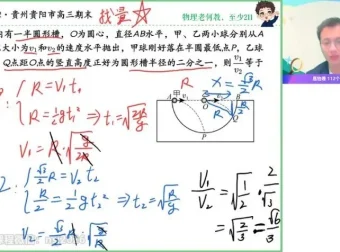 贵州贵阳市高三期末
找量☆
物理老何教，至少211
有一半圆形槽，O为圆心，直径AB水平，甲、乙两小球分别从A
大小为v₁和v₂的速度水平抛出，甲球刚好落在半圆最低点P，乙球
Q点距O点的竖直高度正好为圆形槽半径的二分之一，
v₁
v₂ 等于
甲 v₁ v₂
A O B
P Q
X=√3/2 R
R
{ R=V₁t₁
{ R=1/2gt₁² ⇒ t₁=√(2R/g)
V₁=R·√(g/2R)
2：{ √3/2 R=V₂t₂
{ R/2=1/2gt₂² ⇒ t₂=√(R/g)
V₂=√3/2 R·√(g/R)
V₁/V₂=√(1/2)·2/√3
=√(2/3)=√6/3